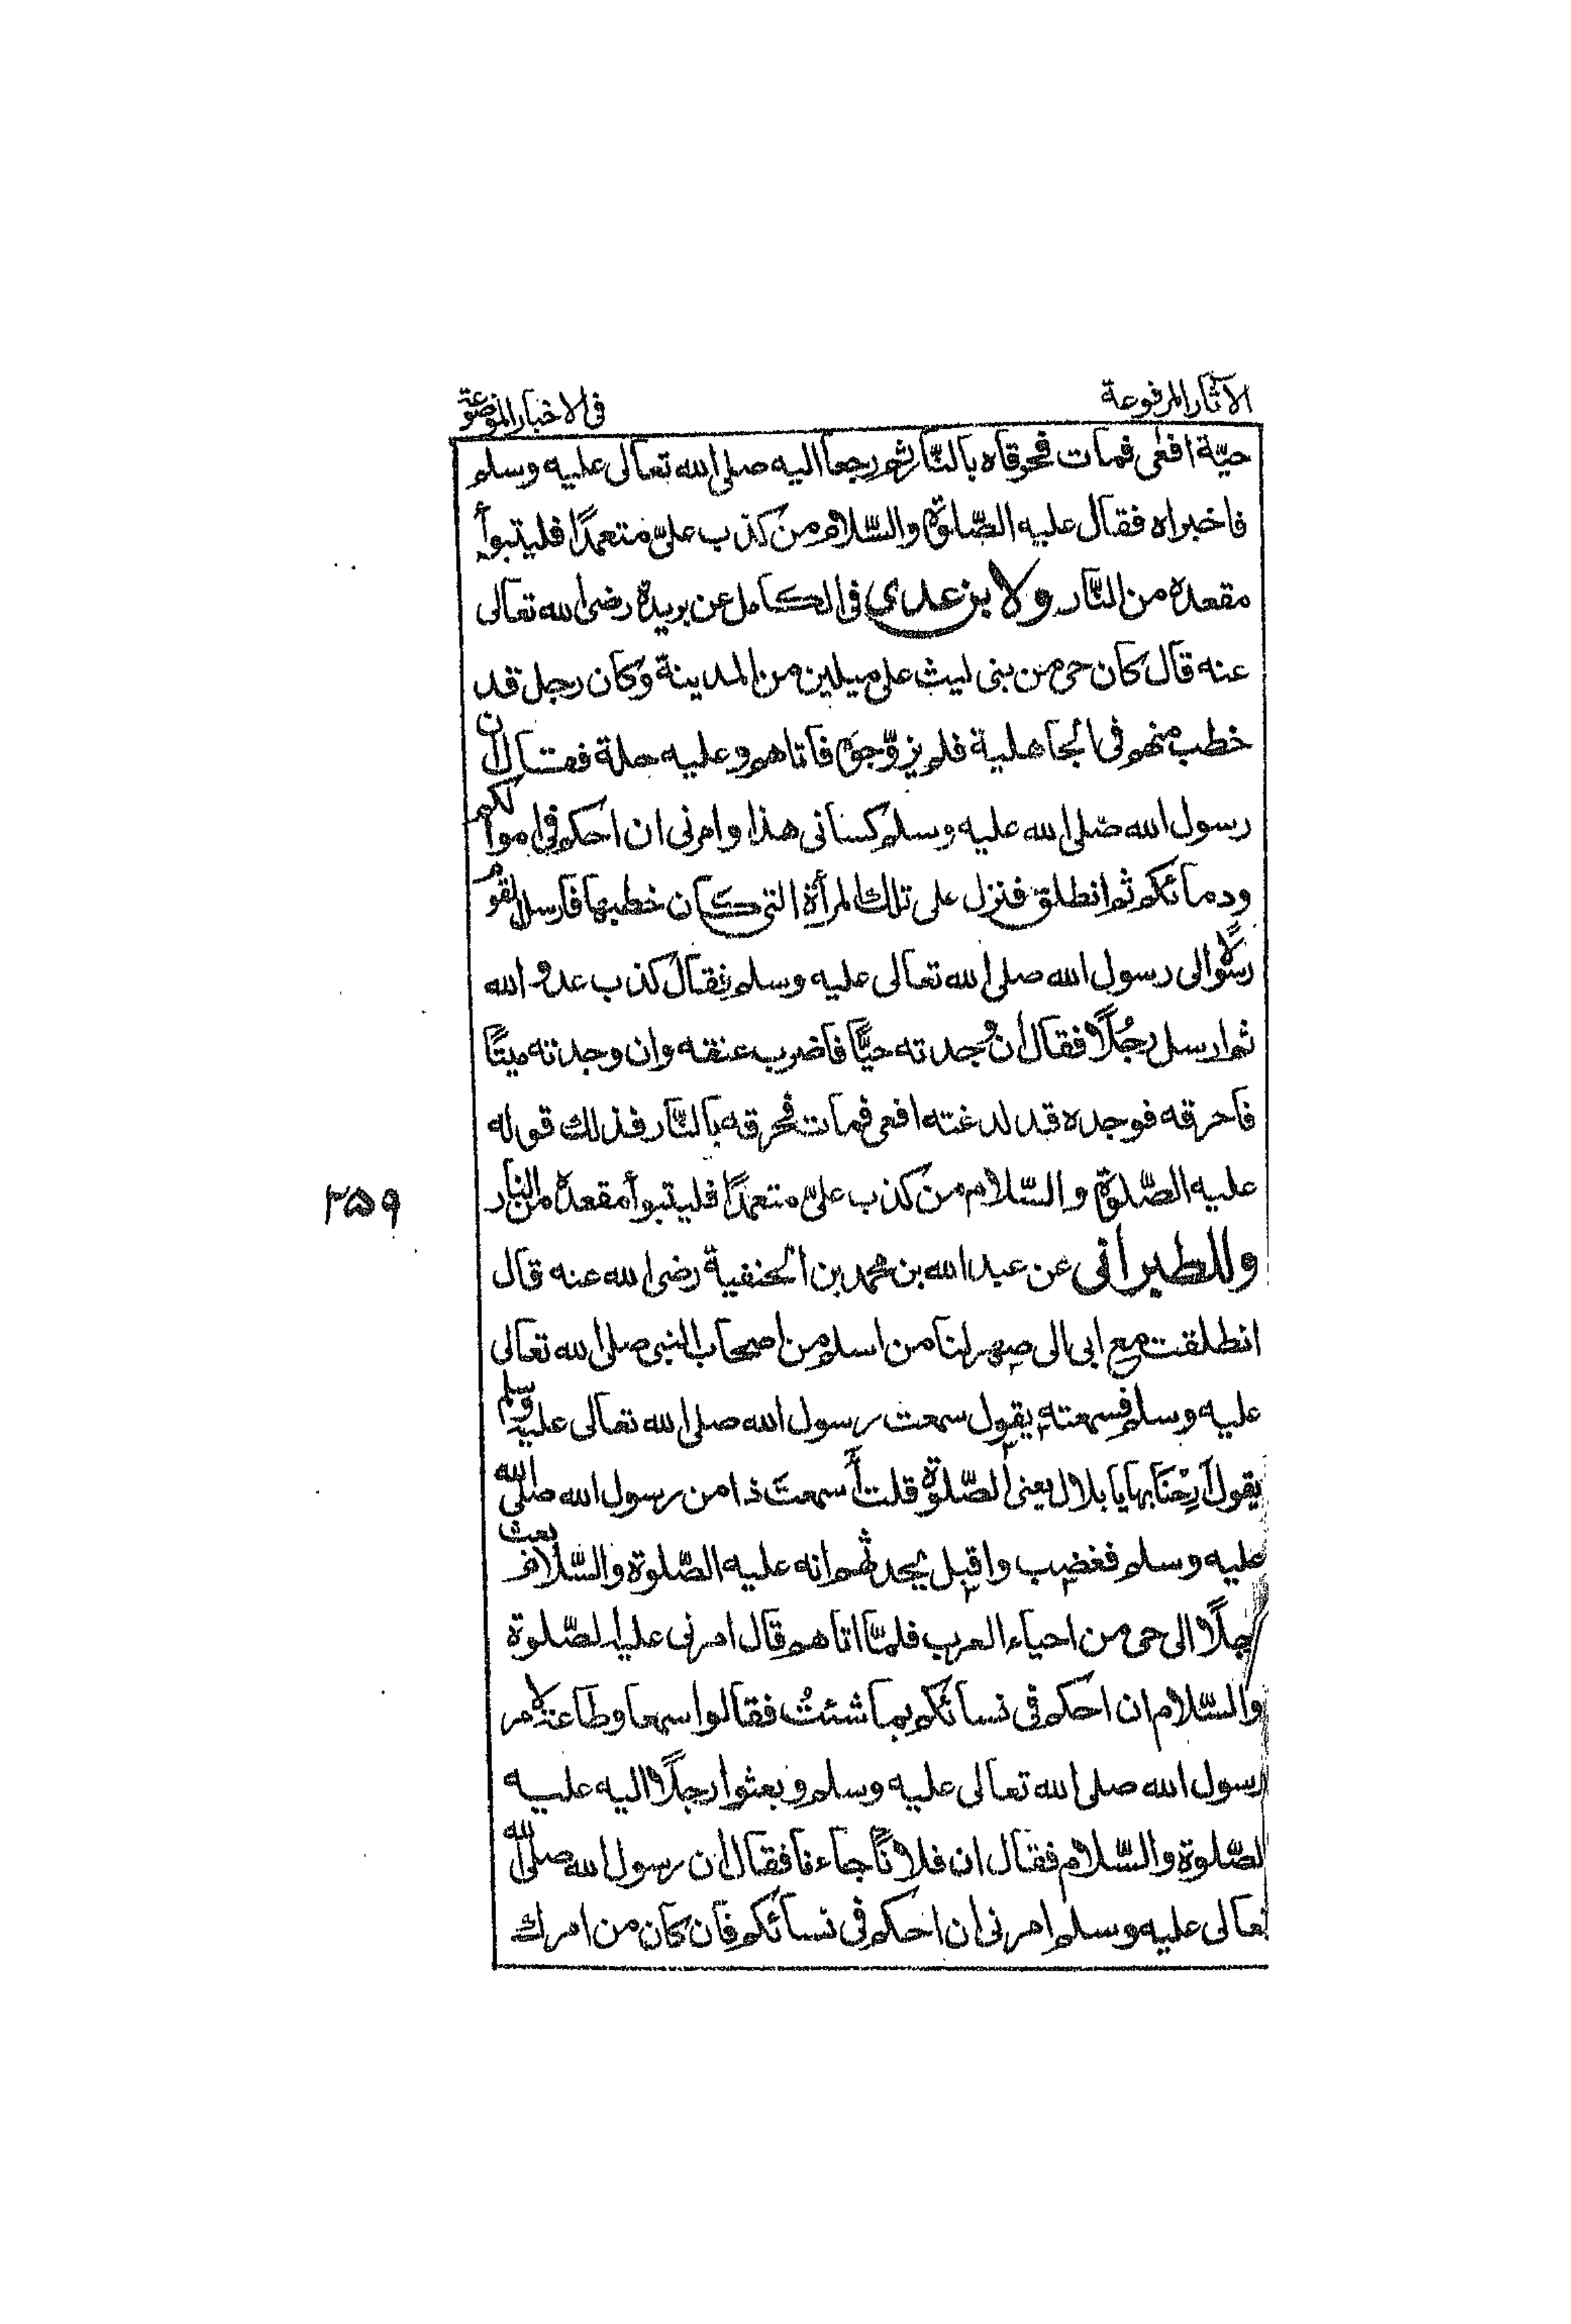 الآثار المرفوعة
فى الاخبار الموضوعة
حيّة افعى فمات فحرقاه بالنّار ثم رجعا اليه صلى الله تعالى عليه وسلم
فاخبراه فقال عليه الصّلوة والسّلام من كذب علىّ متعمدًا فليتبوأ
مقعده من النّار ولابن عدى فى الكامل عن بريدة رضى الله تعالى
عنه قال كان حى من بنى ليث على ميلين من المدينة وكان رجل قد
خطب منهم فى الجاهلية فلم يزوّجوه فاتاهم وعليه حلة فقال ان
رسول الله صلى الله عليه وسلم كسانى هذا وامرنى ان احكم فى اموالكم
ودمائكم ثم انطلق فنزل على تلك المرأة التى كان خطبها فارسل القوم
رسولًا الى رسول الله صلى الله تعالى عليه وسلم فقال كذب عدو الله
ثم ارسل رجُلًا فقال ان وجدته حيًّا فاضرب عنقه وان وجدته ميتًا
فاحرقه فوجده قد لدغته افعى فمات فحرقه بالنّار فذلك قوله
عليه الصّلوة والسّلام من كذب علىّ متعمدًا فليتبوأ مقعده من النار
وللطبرانى عن عبد الله بن محمد بن الحنفية رضى الله عنه قال
انطلقت مع ابى الى صهر لنا من اسلم من اصحاب النبى صلى الله تعالى
عليه وسلم فسمعته يقول سمعت رسول الله صلى الله تعالى عليه وسلم
يقول اَرِحْنَا بها يا بلال يعنى الصّلوة قلت أسمعتَ ذا من رسول الله صلى الله
عليه وسلم فغضب واقبل يحدثهم انه عليه الصّلوة والسّلام بعث
رجلًا الى حى من احياء العرب فلمّا اتاهم قال امرنى عليه الصّلوة
والسّلام ان احكم فى نسائكم بما شئتُ فقالوا سمعا وطاعة لامر
رسول الله صلى الله تعالى عليه وسلم وبعثوا رجلًا اليه عليه
الصّلوة والسّلام فقال ان فلانًا جاءنا فقال ان رسول الله صلى الله
تعالى عليه وسلم امرنى ان احكم فى نسائكم فان كان من امرك
۳۵۹